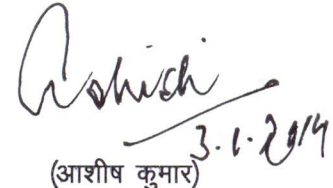 Ashish
3.1.2014
(आशीष कुमार)